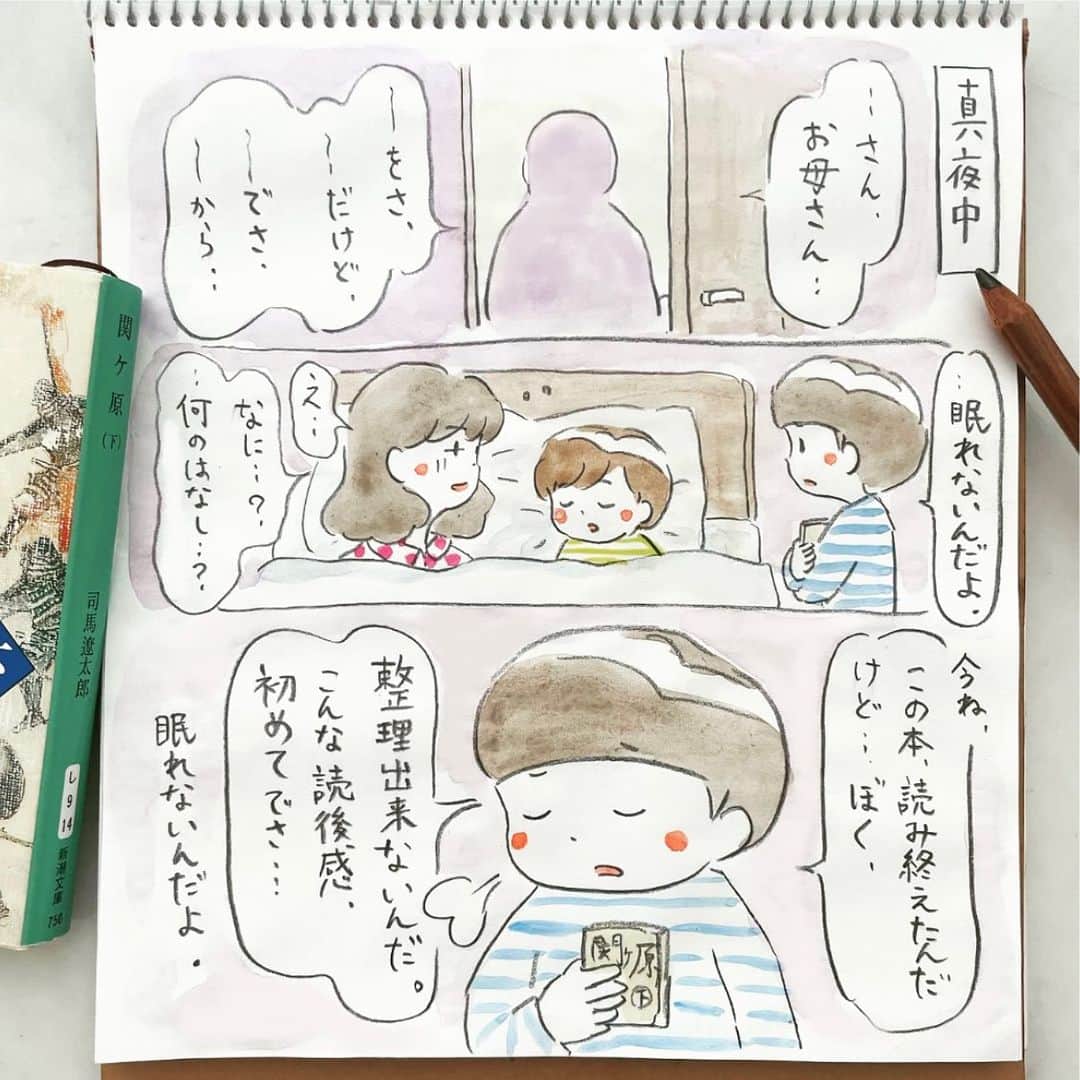 真夜中
〜さん、
お母さん…
〜をさ、
〜だけど、
〜でさ、
〜から..
…眠れないんだよ.
え…
なに…?
…何のはなし…?
今ね、
この本、読み終えたんだ
けど…ぼく、
整理出来ないんだ。
こんな読後感、
初めてでさ…
眠れないんだよ.
関ヶ原
下
関ケ原(下)
司馬遼太郎
し
9
14
新潮文庫
750